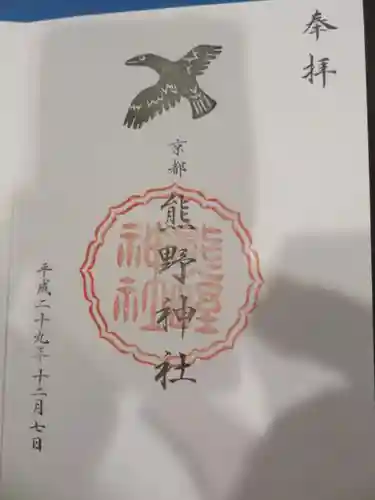 奉拝
京都
熊野神社
熊野
神社
平成二十九年十二月七日